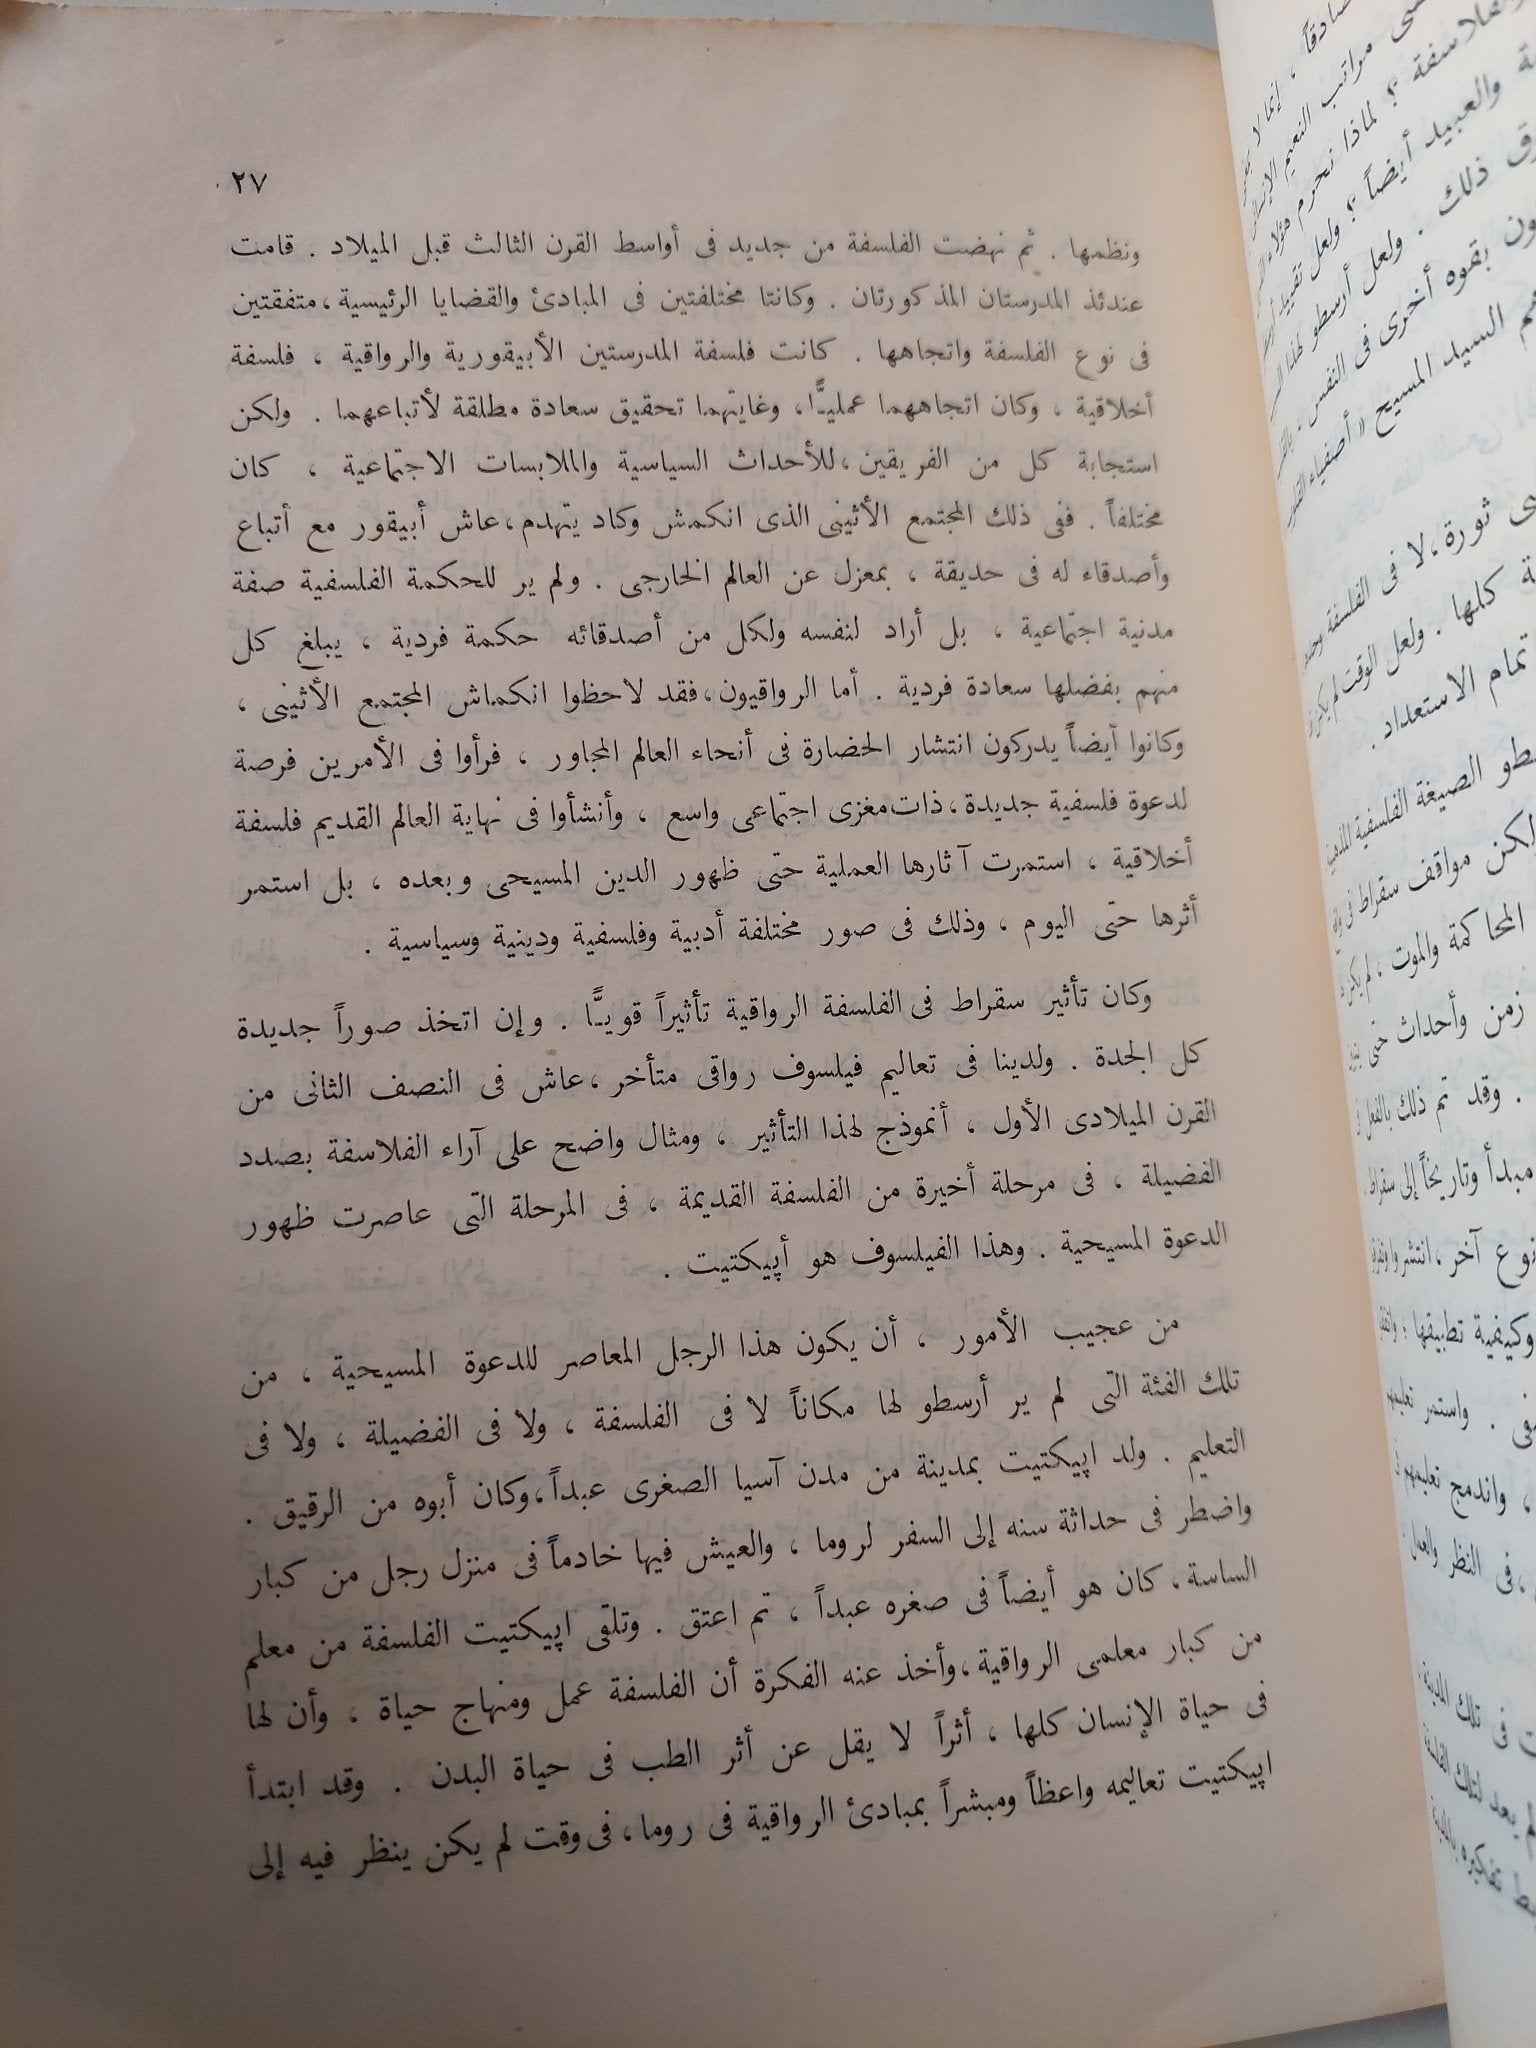 ٢٧
ونظمها . ثم نهضت الفلسفة من جديد فى أواسط القرن الثالث قبل الميلاد . قامت
عندئذ المدرستان المذكورتان . وكانتا مختلفتين فى المبادئ والقضايا الرئيسية ، متفقتين
فى نوع الفلسفة واتجاهها . كانت فلسفة المدرستين الأبيقورية والرواقية ، فلسفة
أخلاقية ، وكان اتجاههما عمليًّا ، وغايتهما تحقيق سعادة مطلقة لأتباعهما . ولكن
استجابة كل من الفريقين ، للأحداث السياسية والملابسات الاجتماعية ، كان
مختلفاً . ففى ذلك المجتمع الأثينى الذى انكمش وكاد يتهدم ، عاش أبيقور مع أتباع
وأصدقاء له فى حديقة ، بمعزل عن العالم الخارجى . ولم ير للحكمة الفلسفية صفة
مدنية اجتماعية ، بل أراد لنفسه ولكل من أصدقائه حكمة فردية ، يبلغ كل
منهم بفضلها سعادة فردية . أما الرواقيون ، فقد لاحظوا انكماش المجتمع الأثينى ،
وكانوا أيضاً يدركون انتشار الحضارة فى أنحاء العالم المجاور ، فرأوا فى الأمرين فرصة
لدعوة فلسفية جديدة ، ذات مغزى اجتماعى واسع ، وأنشأوا فى نهاية العالم القديم فلسفة
أخلاقية ، استمرت آثارها العملية حتى ظهور الدين المسيحى وبعده ، بل استمر
أثرها حتى اليوم ، وذلك فى صور مختلفة أدبية وفلسفية ودينية وسياسية .
وكان تأثير سقراط فى الفلسفة الرواقية تأثيراً قويًّا . وإن اتخذ صوراً جديدة
كل الجدة . ولدينا فى تعاليم فيلسوف رواقى متأخر ، عاش فى النصف الثانى من
القرن الميلادى الأول ، أنموذج لهذا التأثير ، ومثال واضح على آراء الفلاسفة بصدد
الفضيلة ، فى مرحلة أخيرة من الفلسفة القديمة ، فى المرحلة التى عاصرت ظهور
الدعوة المسيحية . وهذا الفيلسوف هو أپيكتيت .
من عجيب الأمور ، أن يكون هذا الرجل المعاصر للدعوة المسيحية ، من
تلك الفئة التى لم ير أرسطو لها مكاناً لا فى الفلسفة ، ولا فى الفضيلة ، ولا فى
التعليم . ولد اپيكتيت بمدينة من مدن آسيا الصغرى عبداً ، وكان أبوه من الرقيق .
واضطر فى حداثة سنه إلى السفر لروما ، والعيش فيها خادماً فى منزل رجل من كبار
الساسة ، كان هو أيضاً فى صغره عبداً ، تم اعتق . وتلقى اپيكتيت الفلسفة من معلم
من كبار معلمى الرواقية ، وأخذ عنه الفكرة أن الفلسفة عمل ومنهاج حياة ، وأن لها
فى حياة الإنسان كلها ، أثراً لا يقل عن أثر الطب فى حياة البدن . وقد ابتدأ
اپيكتيت تعاليمه واعظاً ومبشراً بمبادئ الرواقية فى روما ، فى وقت لم يكن ينظر فيه إلى
مراتب النعيم
والفلاسفة ؟ لماذا نحرم هؤلاء
والعبيد أيضاً ؟ ولعل
ذلك . ولعل أرسطو لهذا
بقوه أخرى فى النفس
السيد المسيح « أصفياء
ثورة ، لا فى الفلسفة
كلها . ولعل الوقت لم يكن
تمام الاستعداد .
الصيغة الفلسفية
مواقف سقراط فى
المحاكمة والموت ، لم يكن
زمن وأحداث حتى
. وقد تم ذلك بالفعل
مبدأ وتاريخاً إلى سقراط
نوع آخر ، انتشروا
وكيفية تطبيقها ؛
. واستمر تعليمهم
، واندمج تعليمهم
، فى النظر والعمل
فى تلك المدينة
يعد لتلك الفلسفة